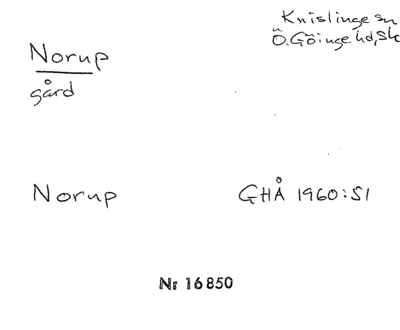 Knislinge sn
Ö. Göinge hd, Sk
Norup
gård
Norup GHÅ 1960:51
Nr 16850